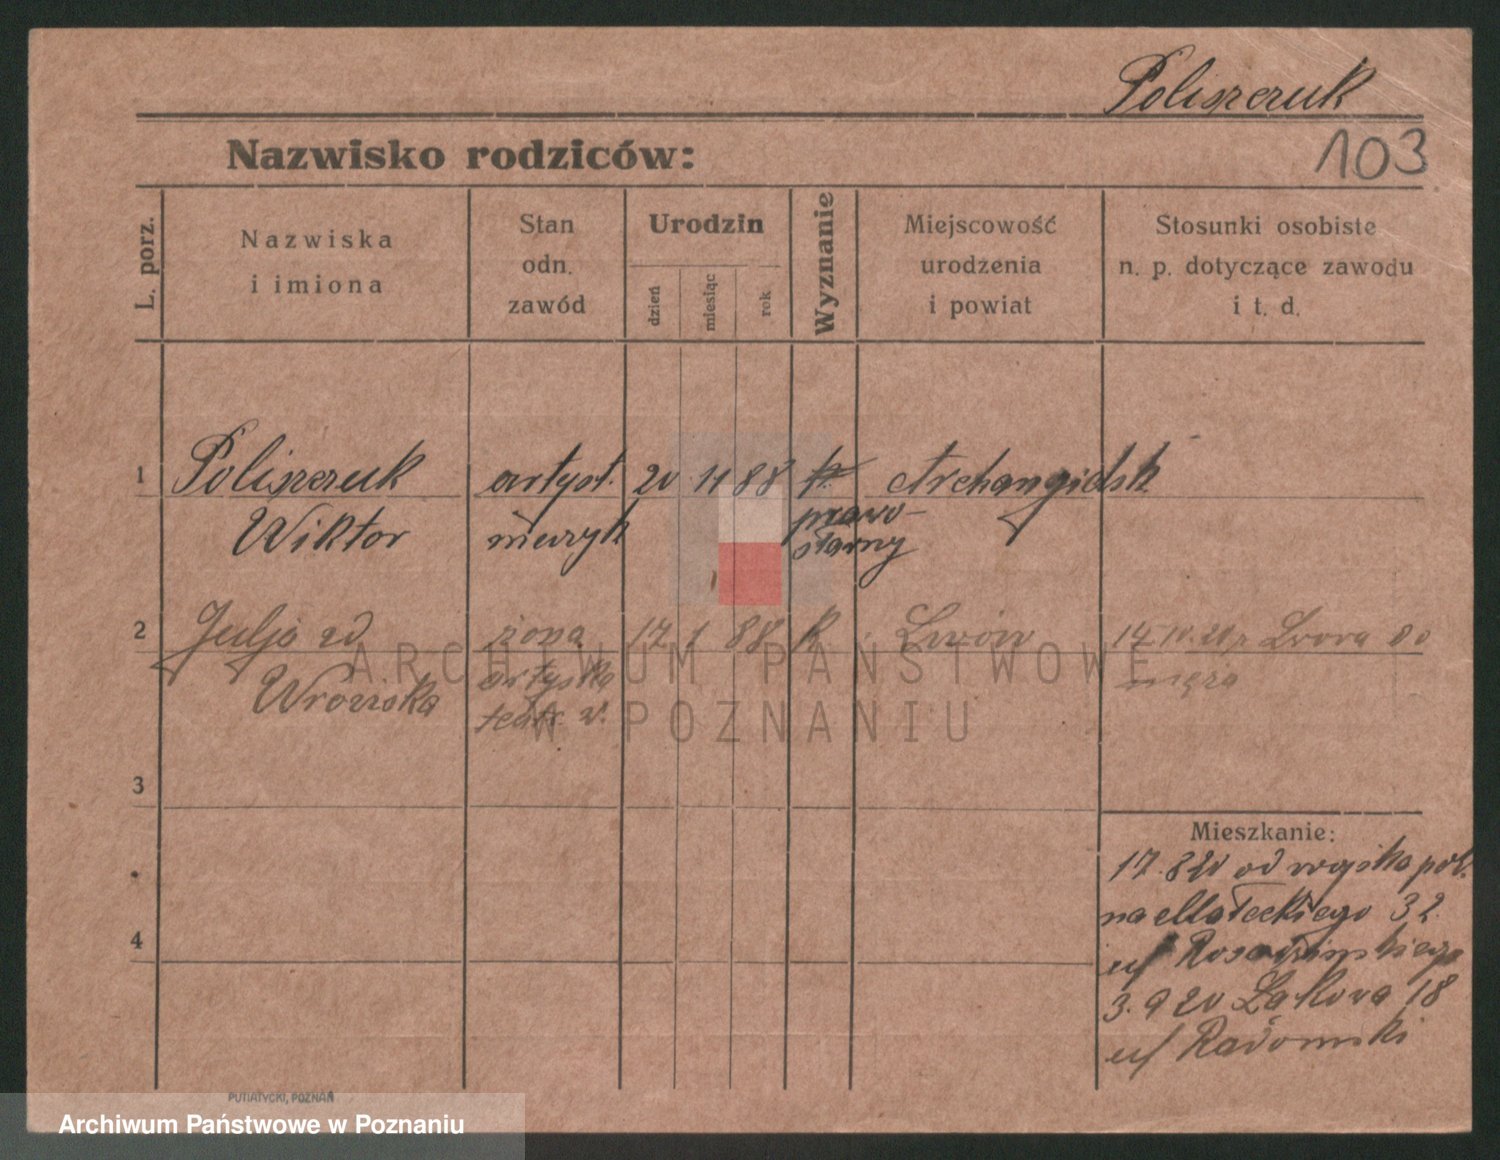 Poliszczuk
103
Nazwisko rodziców:
L. porz.
Nazwiska
i imiona
Stan
odn.
zawód
Urodzin
dzień
miesiąc
rok
Wyznanie
Miejscowość
urodzenia
i powiat
Stosunki osobiste
n. p. dotyczące zawodu
i t. d.
1 Poliszczuk artyst. 20 11 88 k. Archangielsk
Wiktor muzyk prawo-
sławny
2 Julja zd żona 17 1 88 k. Lwów 14 IV. 20 z Lwowa do
Wrońska artystka męża
teatr.
3
Mieszkanie:
17.8 20 od wojska pol.
na Małeckiego 32
4
3. 9 20 Łąkowa 18
u/ Radomski
ARCHIWUM PAŃSTWOWE
W POZNANIU
PUTIATYCKI, POZNAŃ
Archiwum Państwowe w Poznaniu